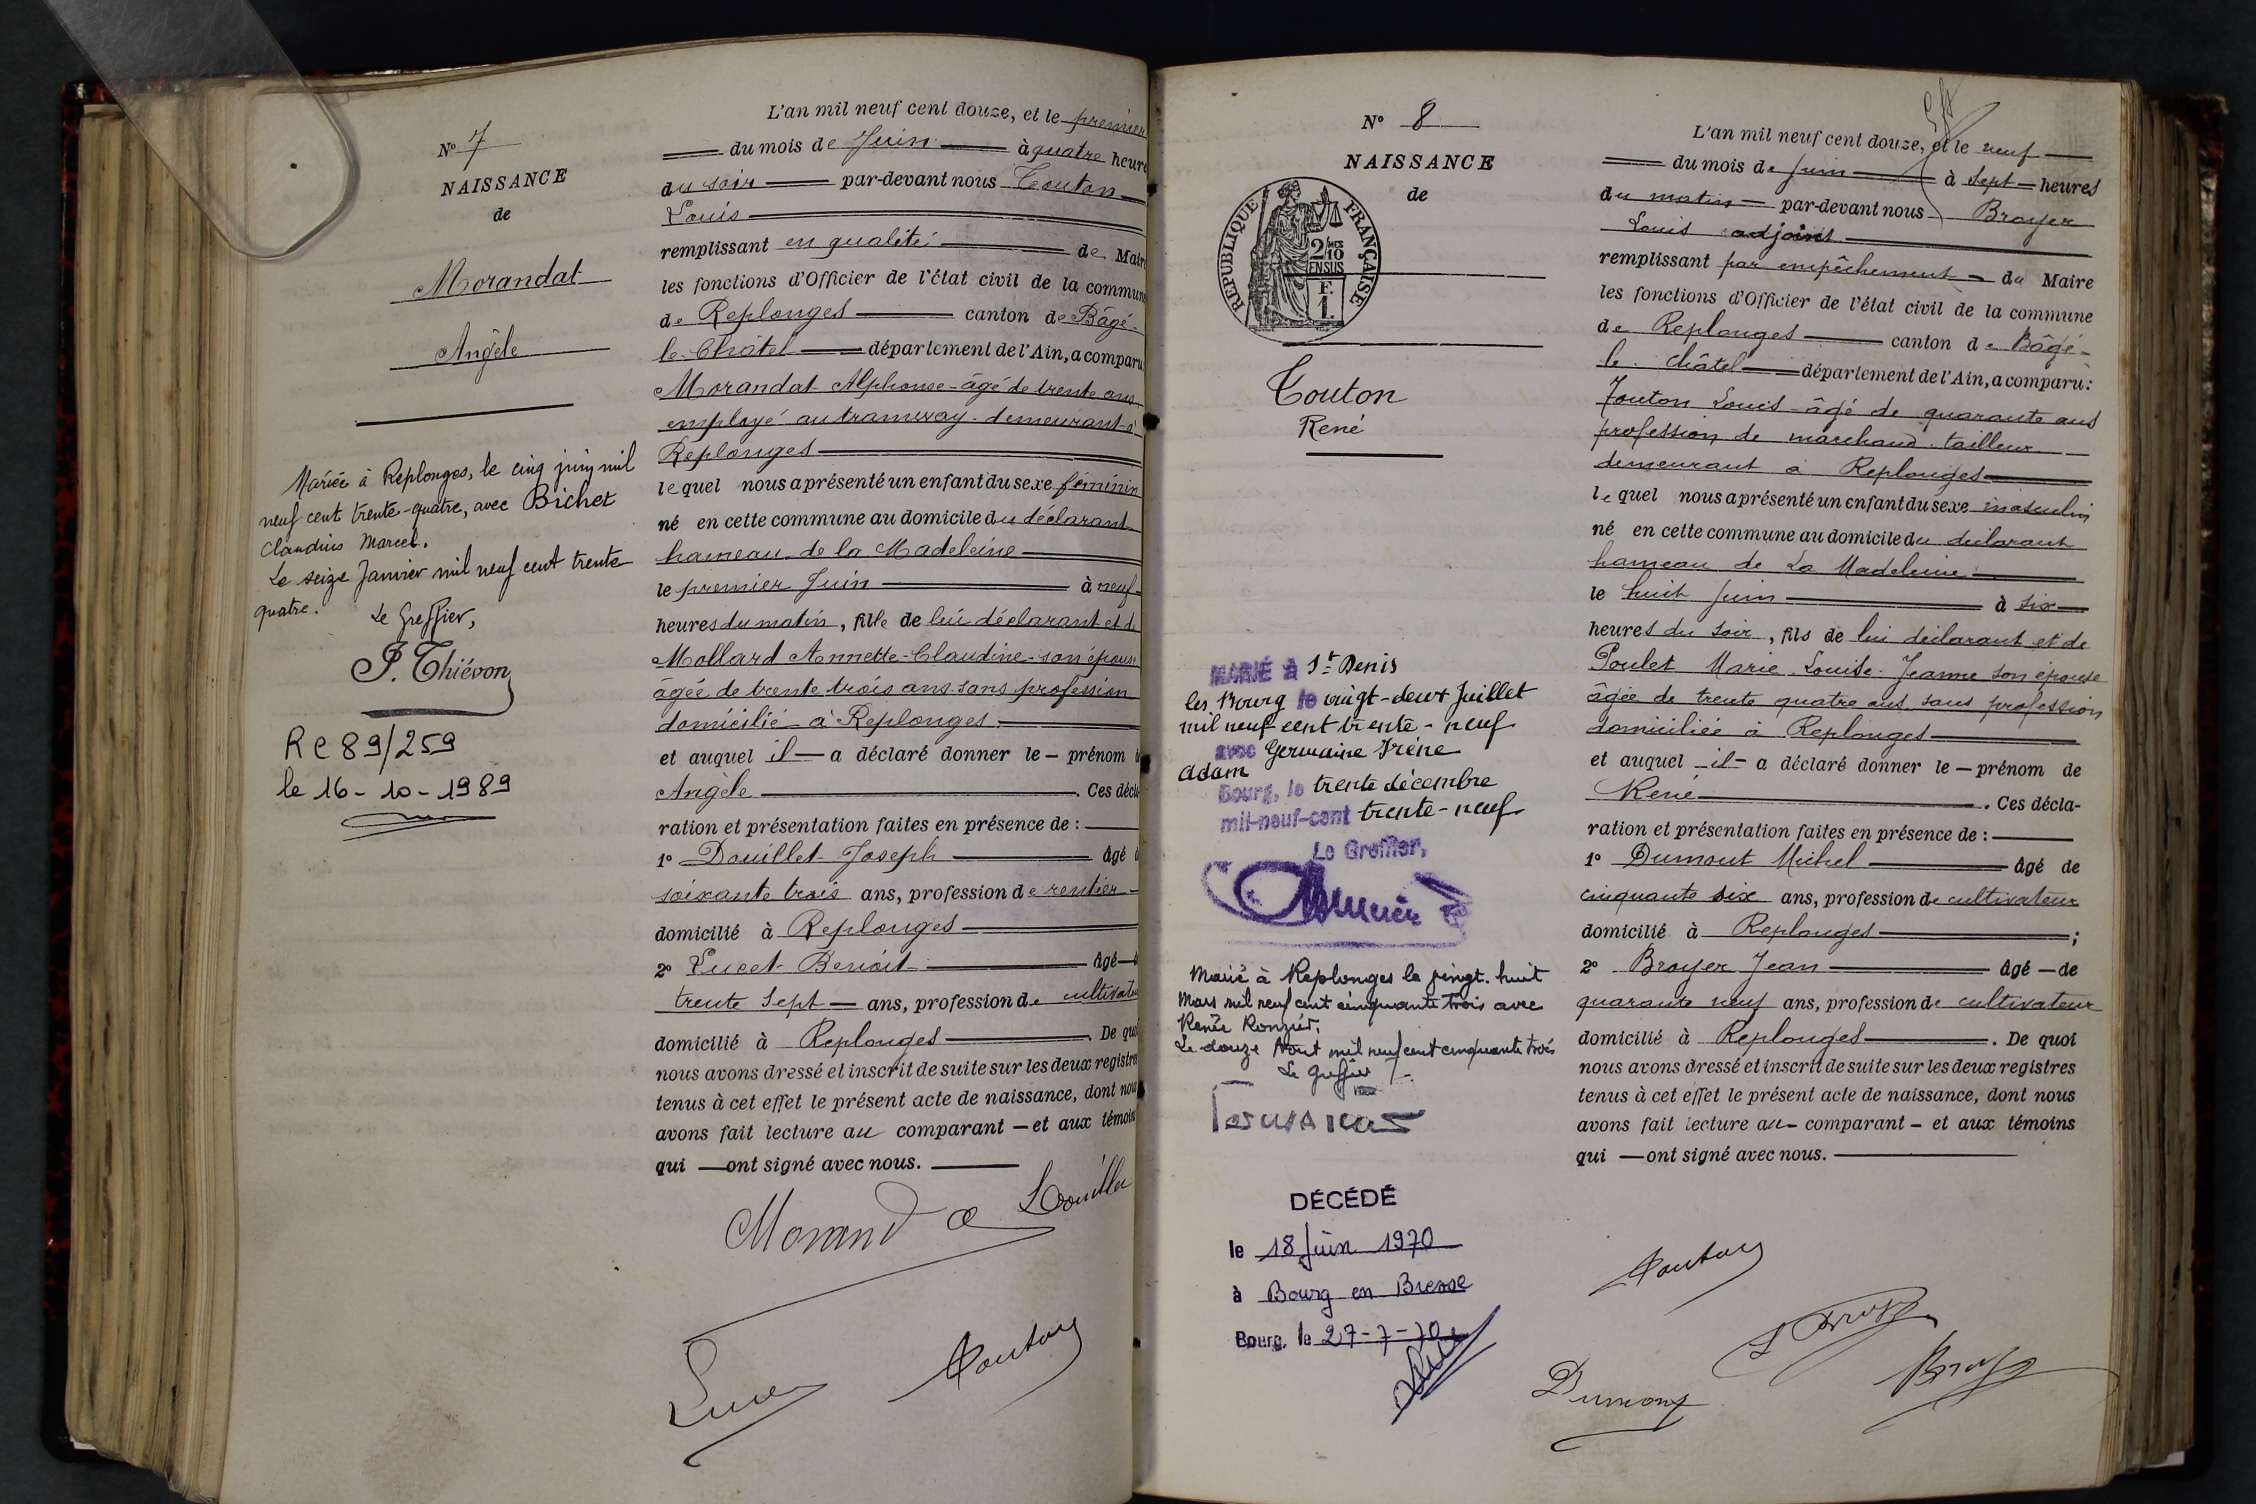 N° 7
NAISSANCE
de
Morandat
Angèle
Mariée à Replonges, le cinq juin mil
neuf cent trente-quatre, avec Bichet
Claudius Marcel.
Le seize Janvier mil neuf cent trente
quatre.
Le Greffier,
P. Thiévon
RC 89/259
le 16-10-1989
L'an mil neuf cent douze, et le premier
du mois de Juin à quatre heure
du soir par-devant nous Touton
Louis
remplissant en qualité de Mair
les fonctions d'Officier de l'état civil de la commun
de Replonges canton de Bâgé-
le-Châtel département de l'Ain, a comparu
Morandat Alphonse - âgé de trente ans
employé au tramway - demeurant à
Replonges
lequel nous a présenté un enfant du sexe féminin
né en cette commune au domicile du déclarant
hameau de la Madeleine
le premier Juin à neuf
heures du matin, fille de lui déclarant et de
Mollard Annette-Claudine - son épouse
âgée de trente trois ans sans profession
domicilié à Replonges
et auquel il a déclaré donner le prénom
Angèle . Ces décla
ration et présentation faites en présence de :
1° Douillet Joseph âgé
soixante trois ans, profession de rentier
domicilié à Replonges
2° Lucet Benoit âgé
trente sept ans, profession de cultivateu
domicilié à Replonges . De quo
nous avons dressé et inscrit de suite sur les deux registre
tenus à cet effet le présent acte de naissance, dont nou
avons fait lecture au comparant et aux témoins
qui ont signé avec nous.
Morand
Touton
N° 8
NAISSANCE
de
REPUBLIQUE FRANÇAISE
2/10MES
EN SUS
F.
1.
Touton
René
MARIÉ à St Denis
les Bourg le vingt-deux Juillet
mil neuf cent trente-neuf
avec Germaine Irène
Adam
Bourg, le trente décembre
mil-neuf-cent trente-neuf
Le Greffier,
Marié à Replonges le vingt-huit
Mars mil neuf cent cinquante trois avec
Renée Ronzier,
Le douze Aout mil neuf cent cinquante trois
Le Greffier
DÉCÉDÉ
le 18 Juin 1970
à Bourg en Bresse
Bourg, le 27-7-70
L'an mil neuf cent douze, et le neuf
du mois de Juin à sept heures
du matin par-devant nous Broyer
Louis adjoint
remplissant par empêchement du Maire
les fonctions d'Officier de l'état civil de la commune
de Replonges canton de Bâgé-
le-Châtel département de l'Ain, a comparu:
Touton Louis - âgé de quarante ans
profession de marchand-tailleur
demeurant à Replonges
lequel nous a présenté un enfant du sexe masculin
né en cette commune au domicile du déclarant
hameau de La Madeleine
le huit Juin à six
heures du soir, fils de lui déclarant et de
Poulet Marie-Louise-Jeanne son épouse
âgée de trente quatre ans sans profession
domiciliée à Replonges
et auquel il a déclaré donner le prénom de
René . Ces décla-
ration et présentation faites en présence de :
1° Dumont Michel âgé de
cinquante six ans, profession de cultivateur
domicilié à Replonges ;
2° Broyer Jean âgé de
quarante neuf ans, profession de cultivateur
domicilié à Replonges . De quoi
nous avons dressé et inscrit de suite sur les deux registres
tenus à cet effet le présent acte de naissance, dont nous
avons fait lecture au comparant et aux témoins
qui ont signé avec nous.
Touton
Dumont